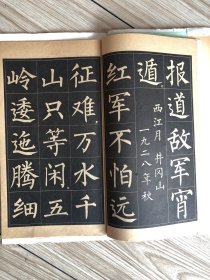 报道敌军宵
遁。
西江月 井冈山
一九二八年秋
红军不怕远
征难，万水千
山只等闲。五
岭逶迤腾细